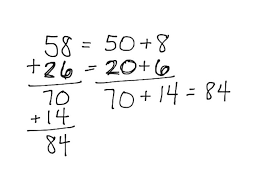 58 = 50+8
+26 = 20+6
70 70 + 14 = 84
+14
84